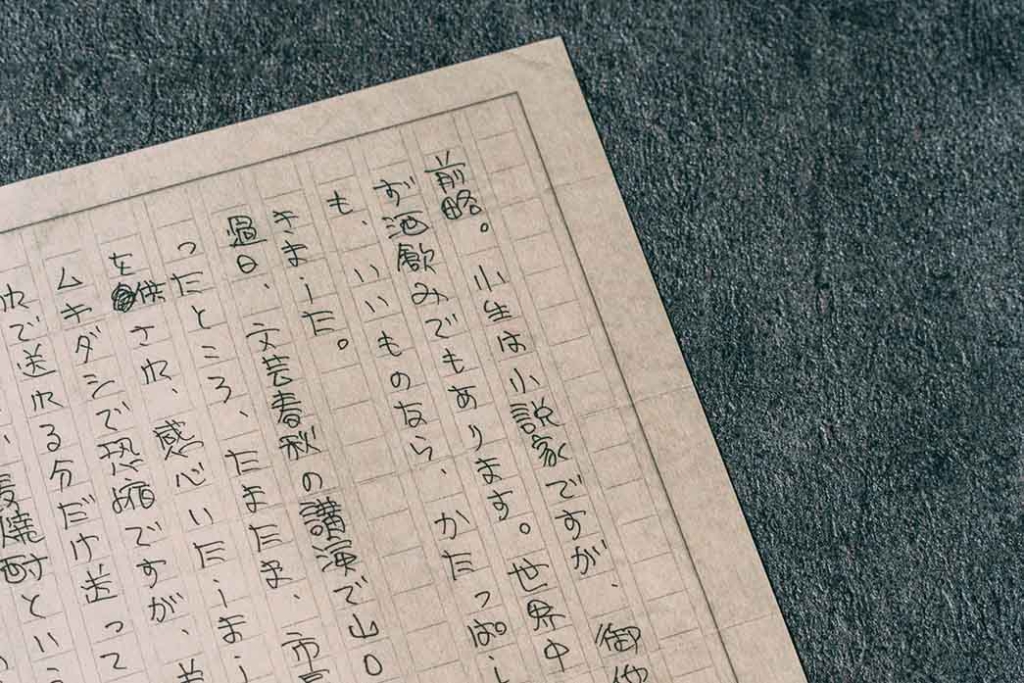 前略。小生は小説家ですが、御
ず酒飲みでもあります。世界中
も、いいものなら、かたっぱし
きました。
過日、文芸春秋の講演で山口
ったところ、たまたま、市
を供され、感心いたしまし
ムキダシで恐縮ですが、
れで送れる分だけ送って
麦焼酎という